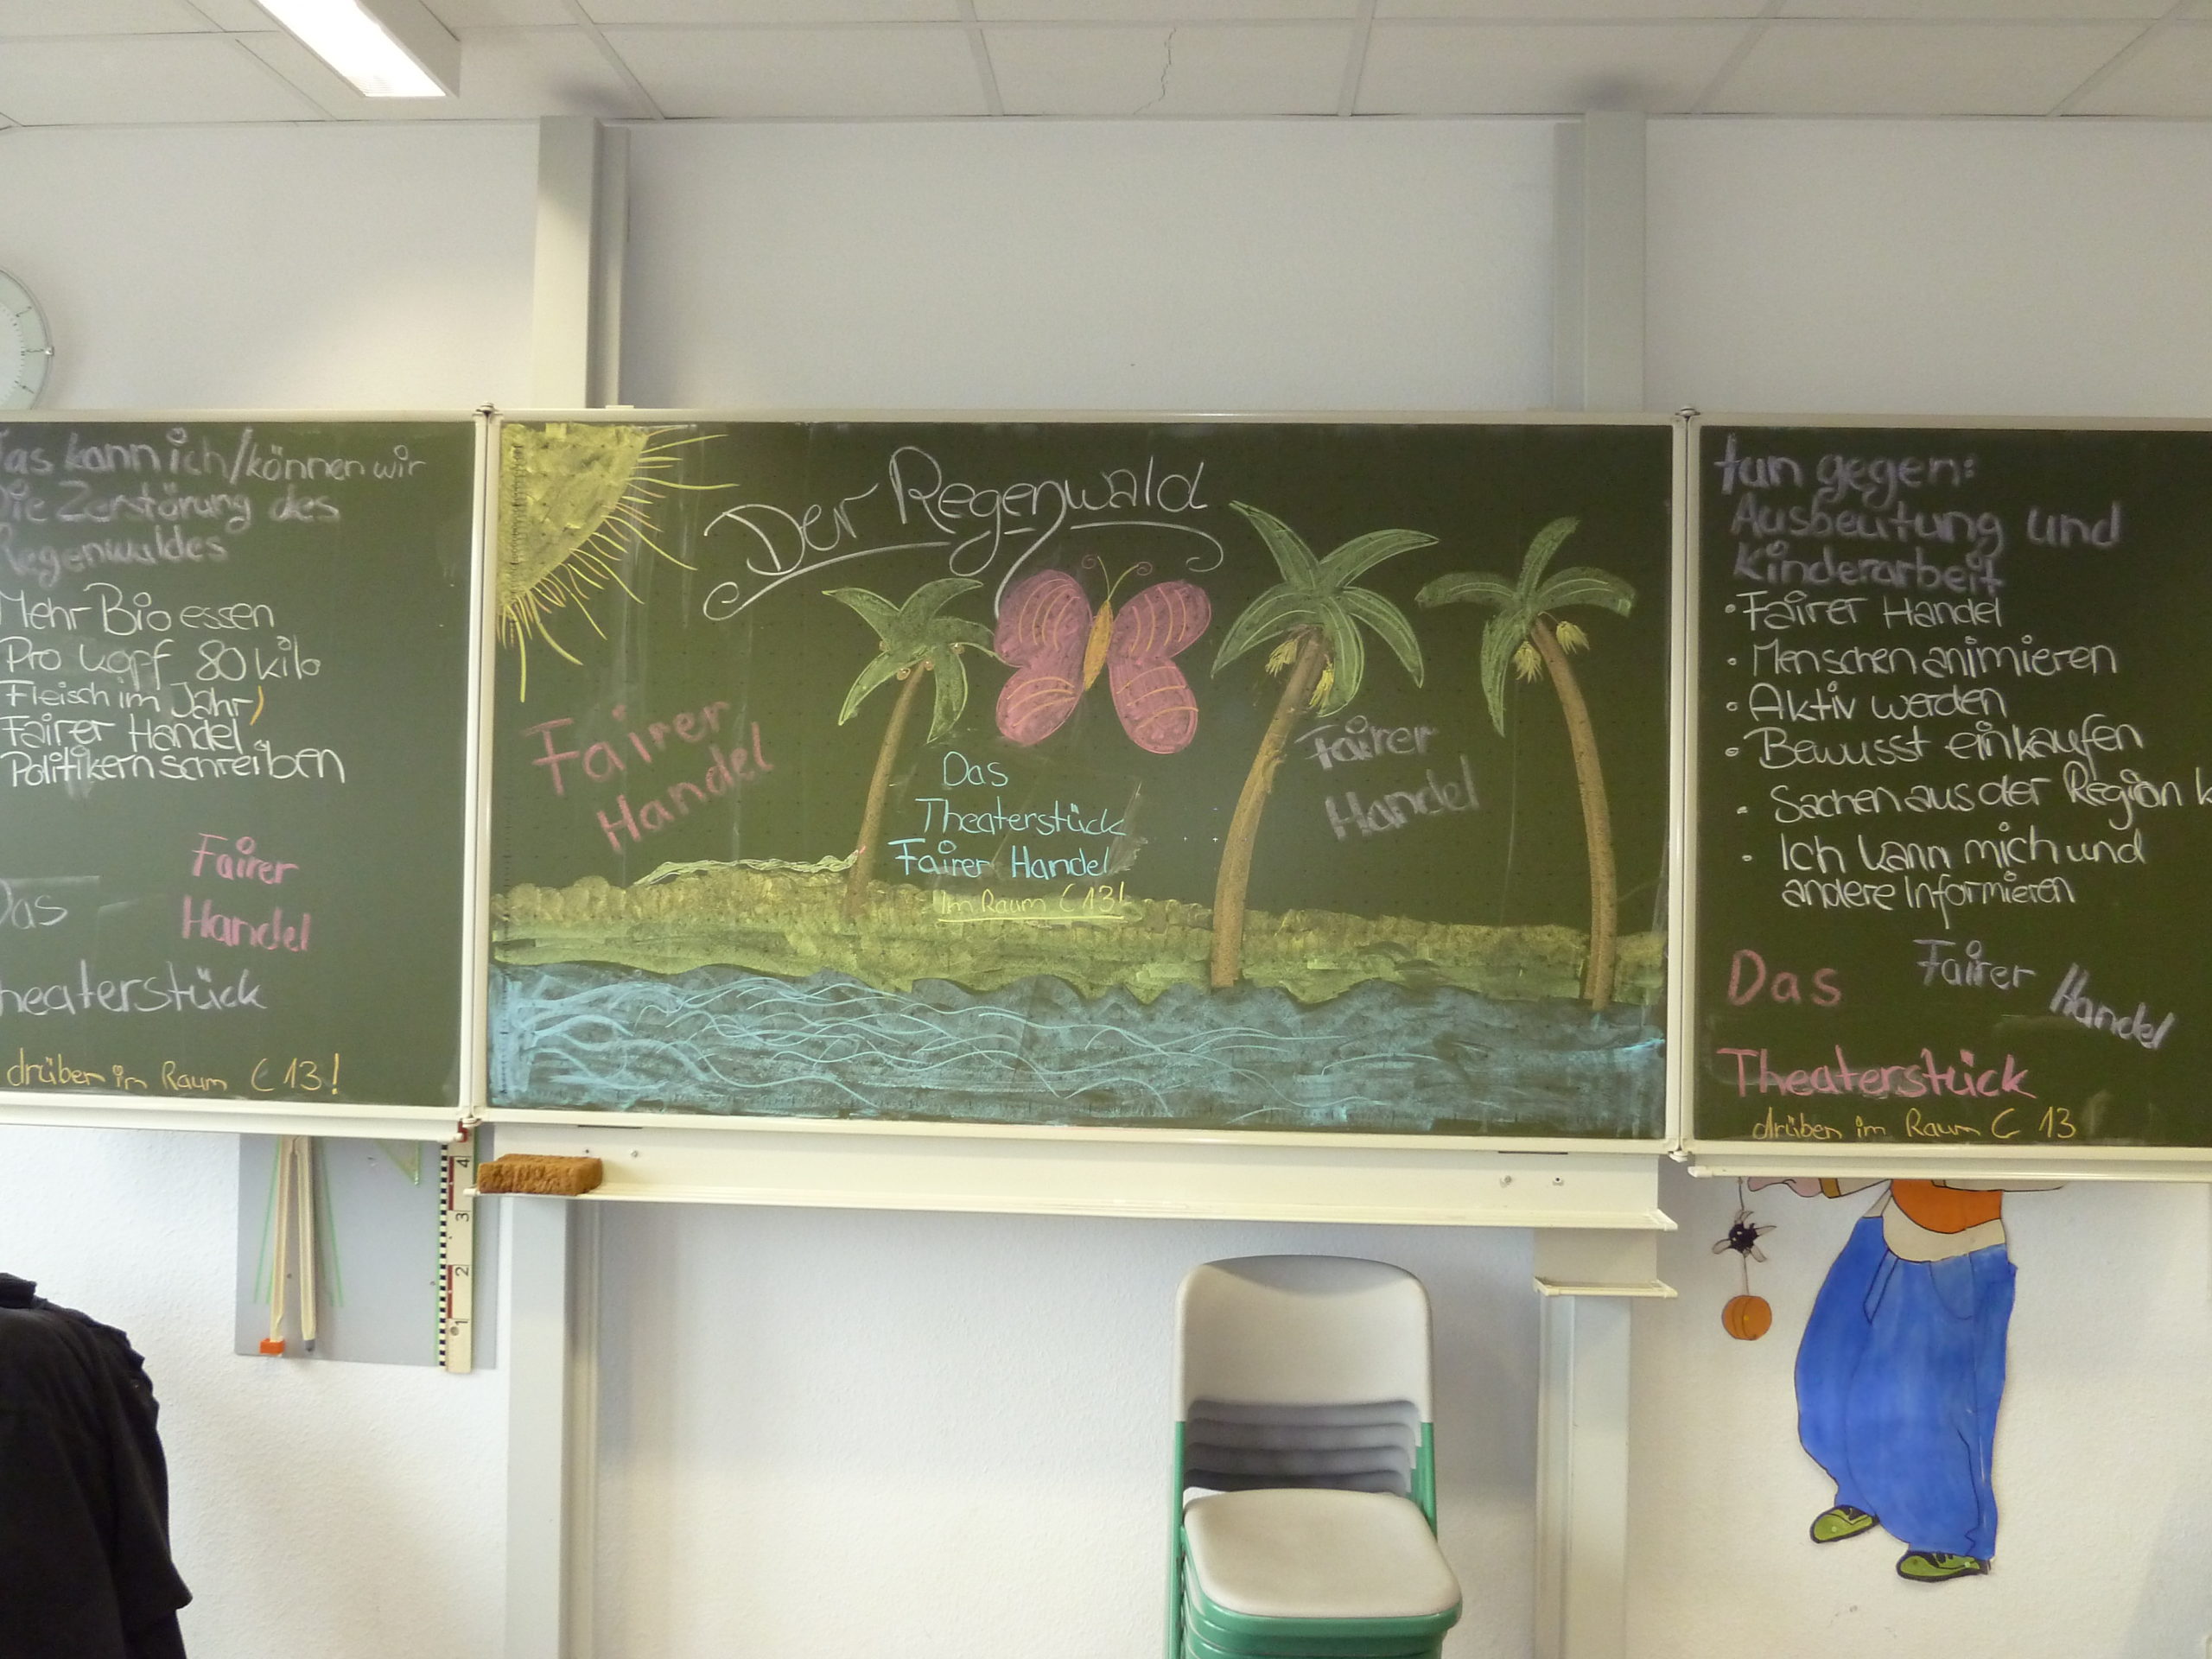 as kann ich/können wir
die Zerstörung des
Regenwaldes
Mehr Bio essen
Pro Kopf 80 kilo
Fleisch im Jahr)
Fairer Handel
Politikern schreiben
Fairer
Handel
Das
heaterstück
drüber in Raum C 13!
Der Regenwald
Fairer
Handel
Das
Theaterstück
Fairer Handel
im Raum C 13!
Fairer
Handel
tun gegen:
Ausbeutung und
Kinderarbeit
• Fairer Handel
• Menschen animieren
• Aktiv werden
• Bewusst einkaufen
• Sachen aus der Region k
• Ich kann mich und
andere Informieren
Das Fairer Handel
Theaterstück
drüben im Raum C 13
4
3
2
1